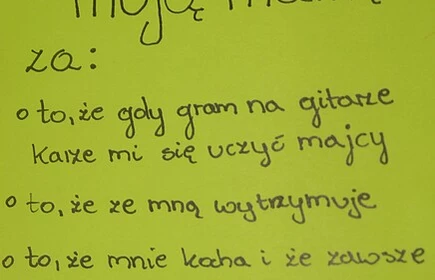 moją
za:
o to, że gdy gram na gitarze
karze mi się uczyć majcy
o to, że ze mną wytrzymuje
o to, że mnie kocha i że zawsze